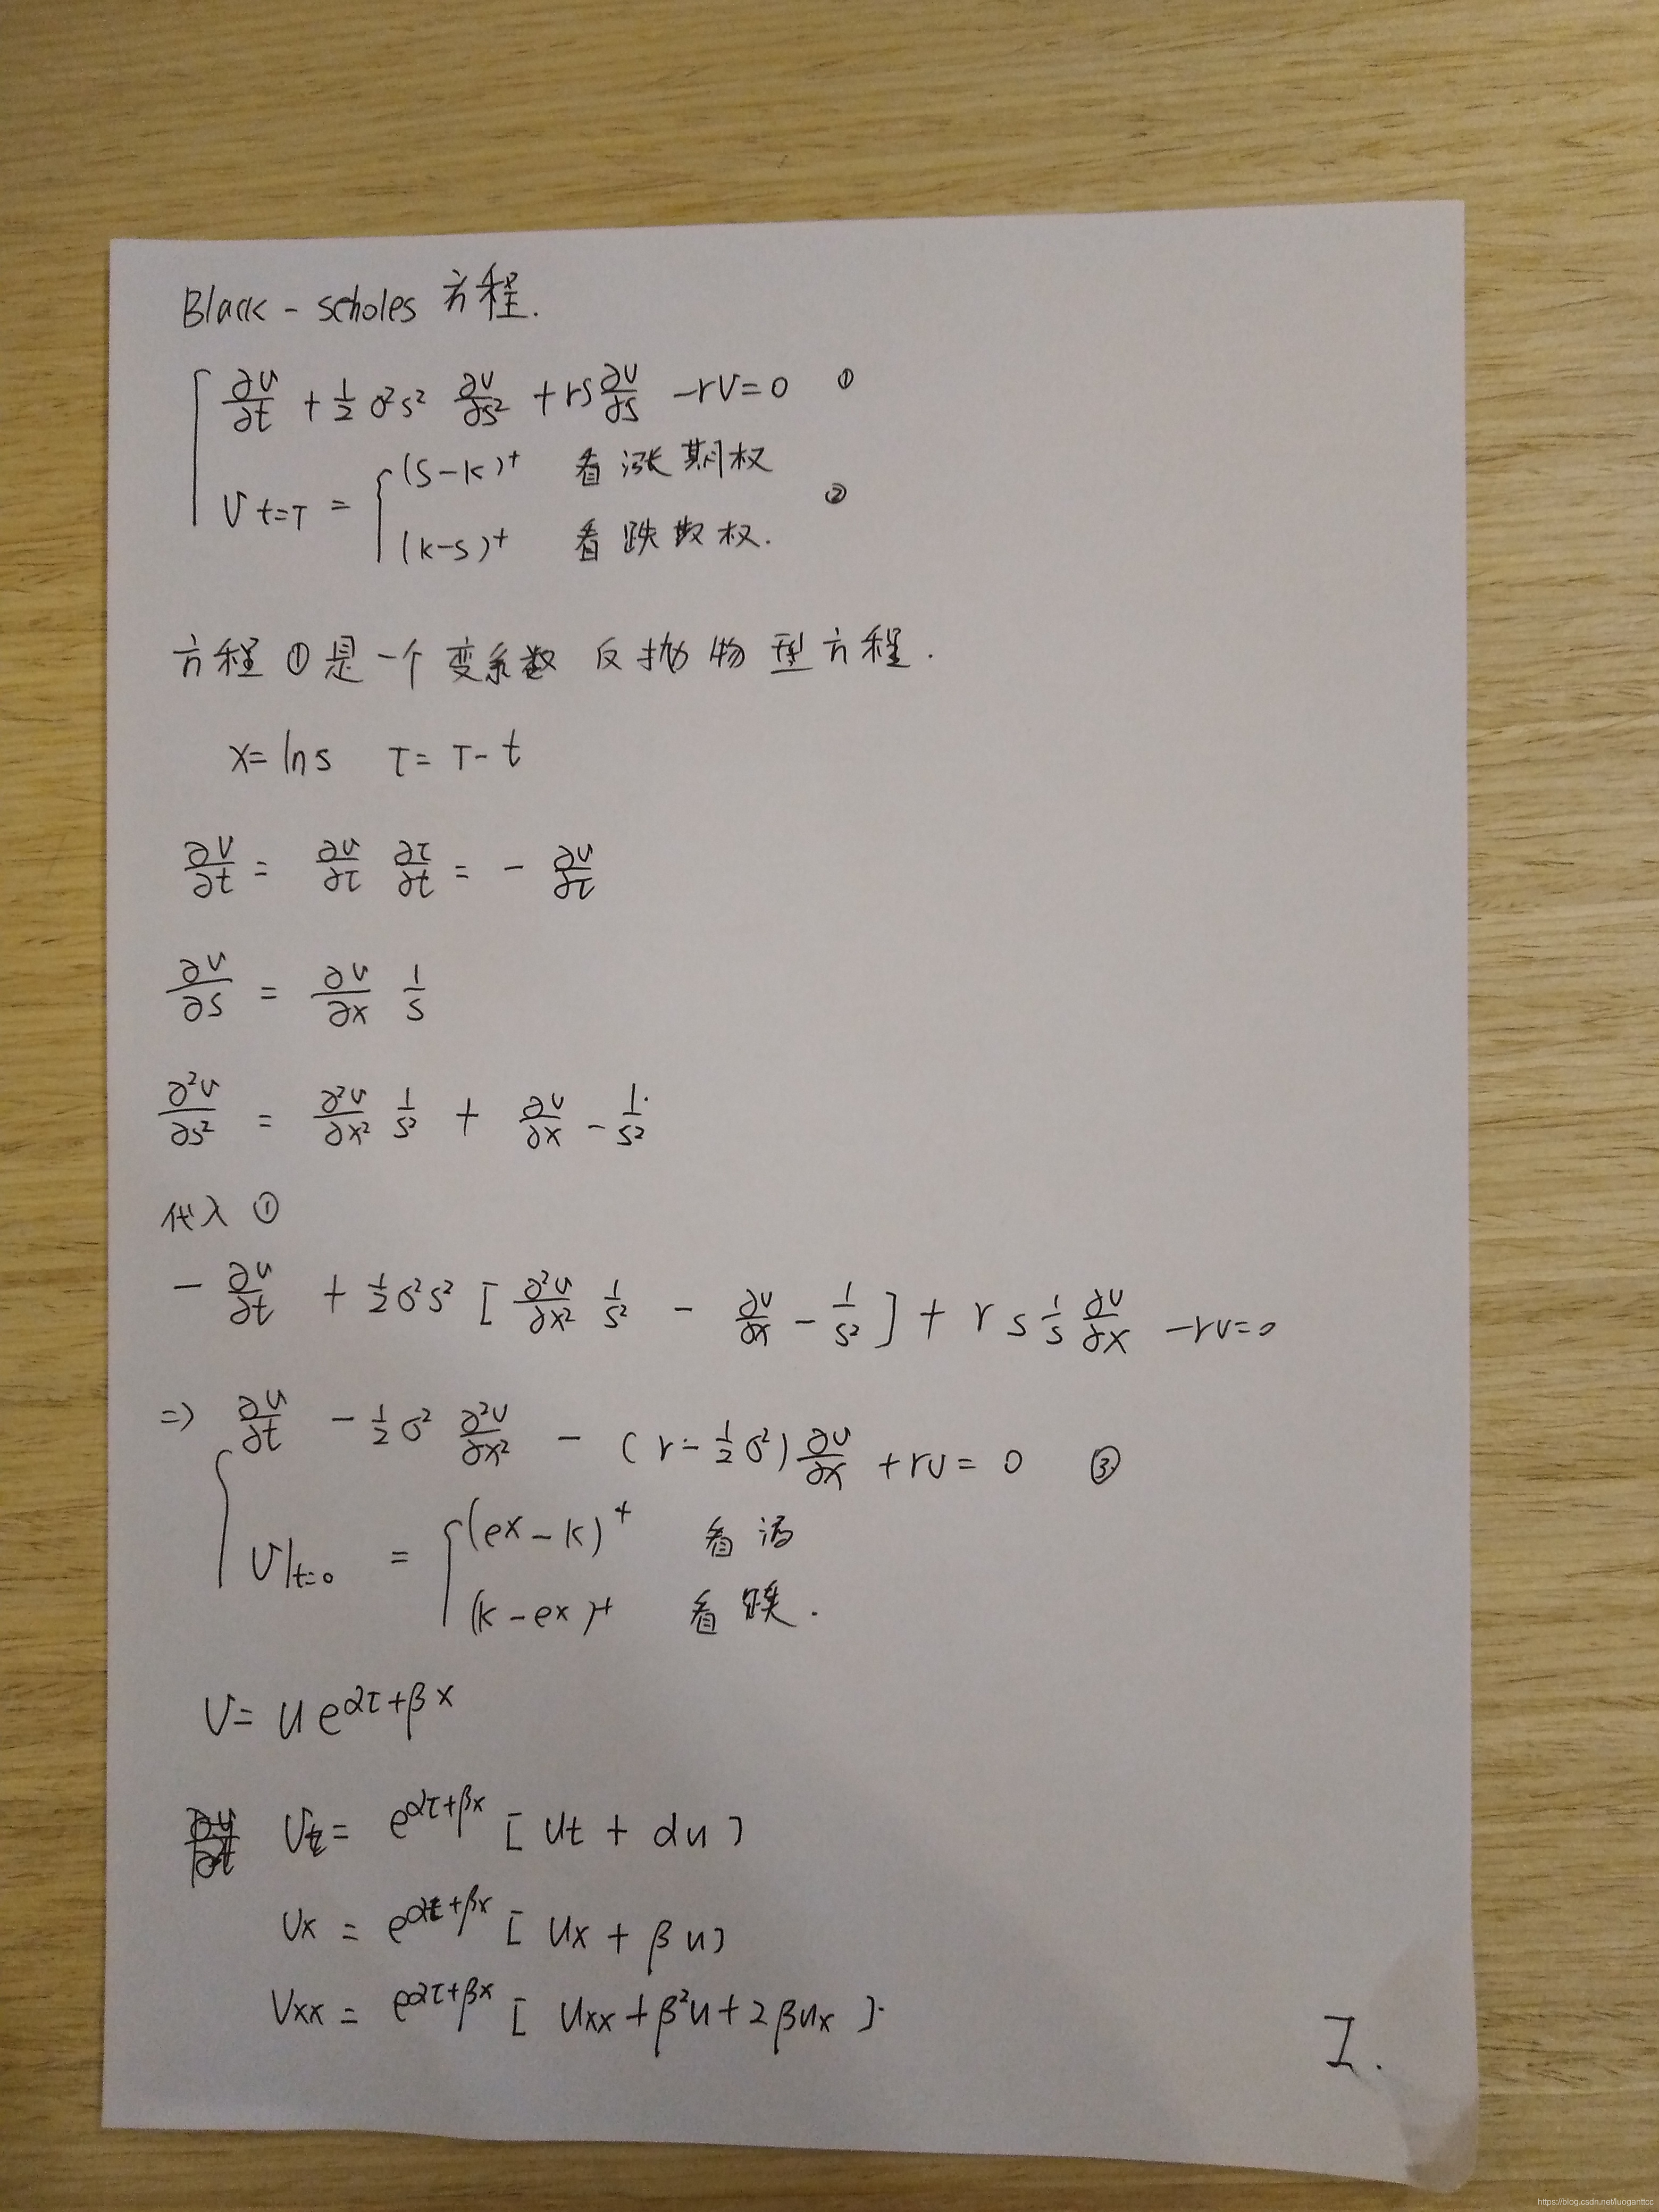 Black - scholes 方程.
∂V/∂t + 1/2 σ²s² ∂V/∂s² + rS ∂V/∂S - rV = 0 ①
V t=T = { (S-K)⁺ 看涨期权
(K-S)⁺ 看跌 权. ②
方程①是一个变系数 反抛物型方程.
x = ln s τ = T - t
∂V/∂t = ∂V/∂τ ∂τ/∂t = - ∂V/∂τ
∂V/∂S = ∂V/∂x 1/S
∂²V/∂S² = ∂²V/∂x² 1/S² + ∂V/∂x - 1/S²
代入 ①
- ∂V/∂t + 1/2 σ²S² [ ∂²V/∂x² 1/S² - ∂V/∂x - 1/S² ] + r S 1/S ∂V/∂x - rV = 0
=> ∂V/∂t - 1/2 σ² ∂²V/∂x² - ( r - 1/2 σ² ) ∂V/∂x + rV = 0 ③
V|t=0 = { (ex - K)⁺ 看
(K - ex)⁺ 看 .
V = u e^ατ+βx
Vτ = e^ατ+βx [ ut + αu ]
Vx = e^ατ+βx [ ux + βu ]
Vxx = e^ατ+βx [ uxx + β²u + 2βux ].
I.
https://blog.csdn.net/luoganttcc